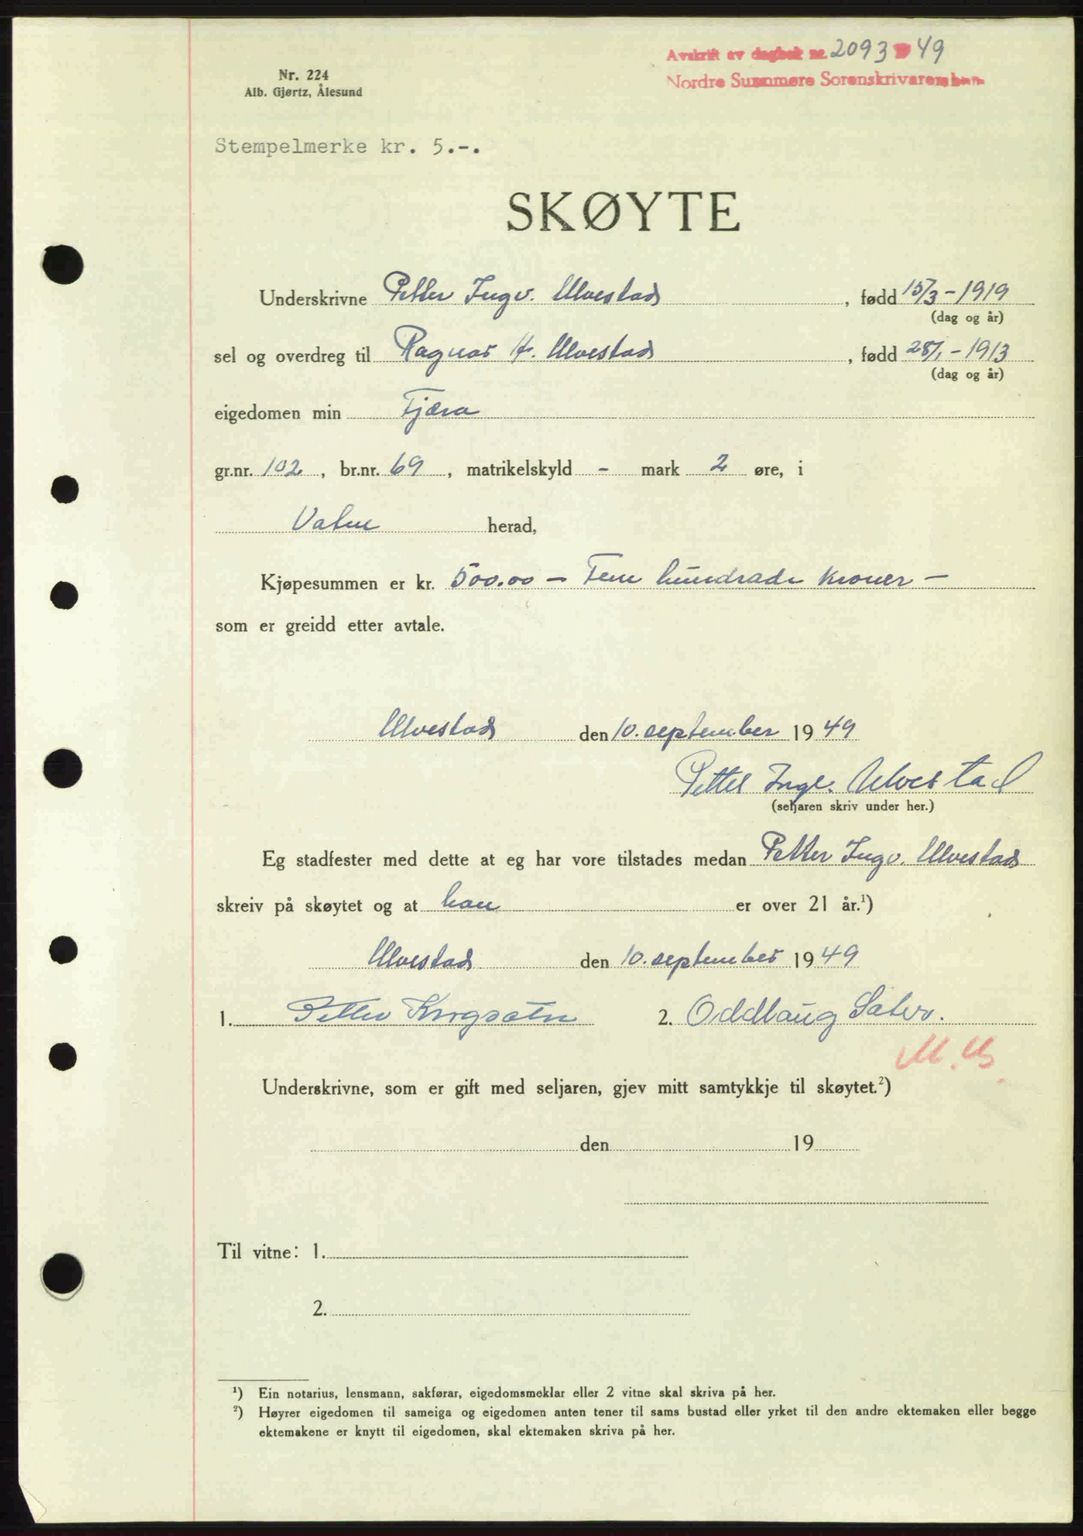 Avskrift av dagbok nr. 2093 19 49
Nordre Sunnmøre Sorenskrivarembæte
Nr. 224
Alb. Gjørtz, Ålesund
Stempelmerke kr. 5.-.
SKØYTE
Underskrivne Petter Ingv. Ulvestad, fødd 15/3-1919
(dag og år)
sel og overdreg til Ragnar H. Ulvestad, fødd 28/1-1913
(dag og år)
eigedomen min Fjæra
gr.nr. 102, br.nr. 69, matrikelskyld - mark 2 øre, i
Vatne herad,
Kjøpesummen er kr. 500.00 - Fem hundrade kroner -
som er greidd etter avtale.
Ulvestad den 10. september 1949
Petter Ingv. Ulvestad
(seljaren skriv under her.)
Eg stadfester med dette at eg har vore tilstades medan Petter Ingv. Ulvestad
skreiv på skøytet og at han er over 21 år.¹)
Ulvestad den 10. september 1949
1. Petter 2. Oddlaug
Underskrivne, som er gift med seljaren, gjev mitt samtykkje til skøytet.²)
den 19
Til vitne: 1.
2.
¹) Ein notarius, lensmann, sakførar, eigedomsmeklar eller 2 vitne skal skriva på her.
²) Høyrer eigedomen til sameiga og eigedomen anten tener til sams bustad eller yrket til den andre ektemaken eller begge
ektemakene er knytt til eigedomen, skal ektemaken skriva på her.